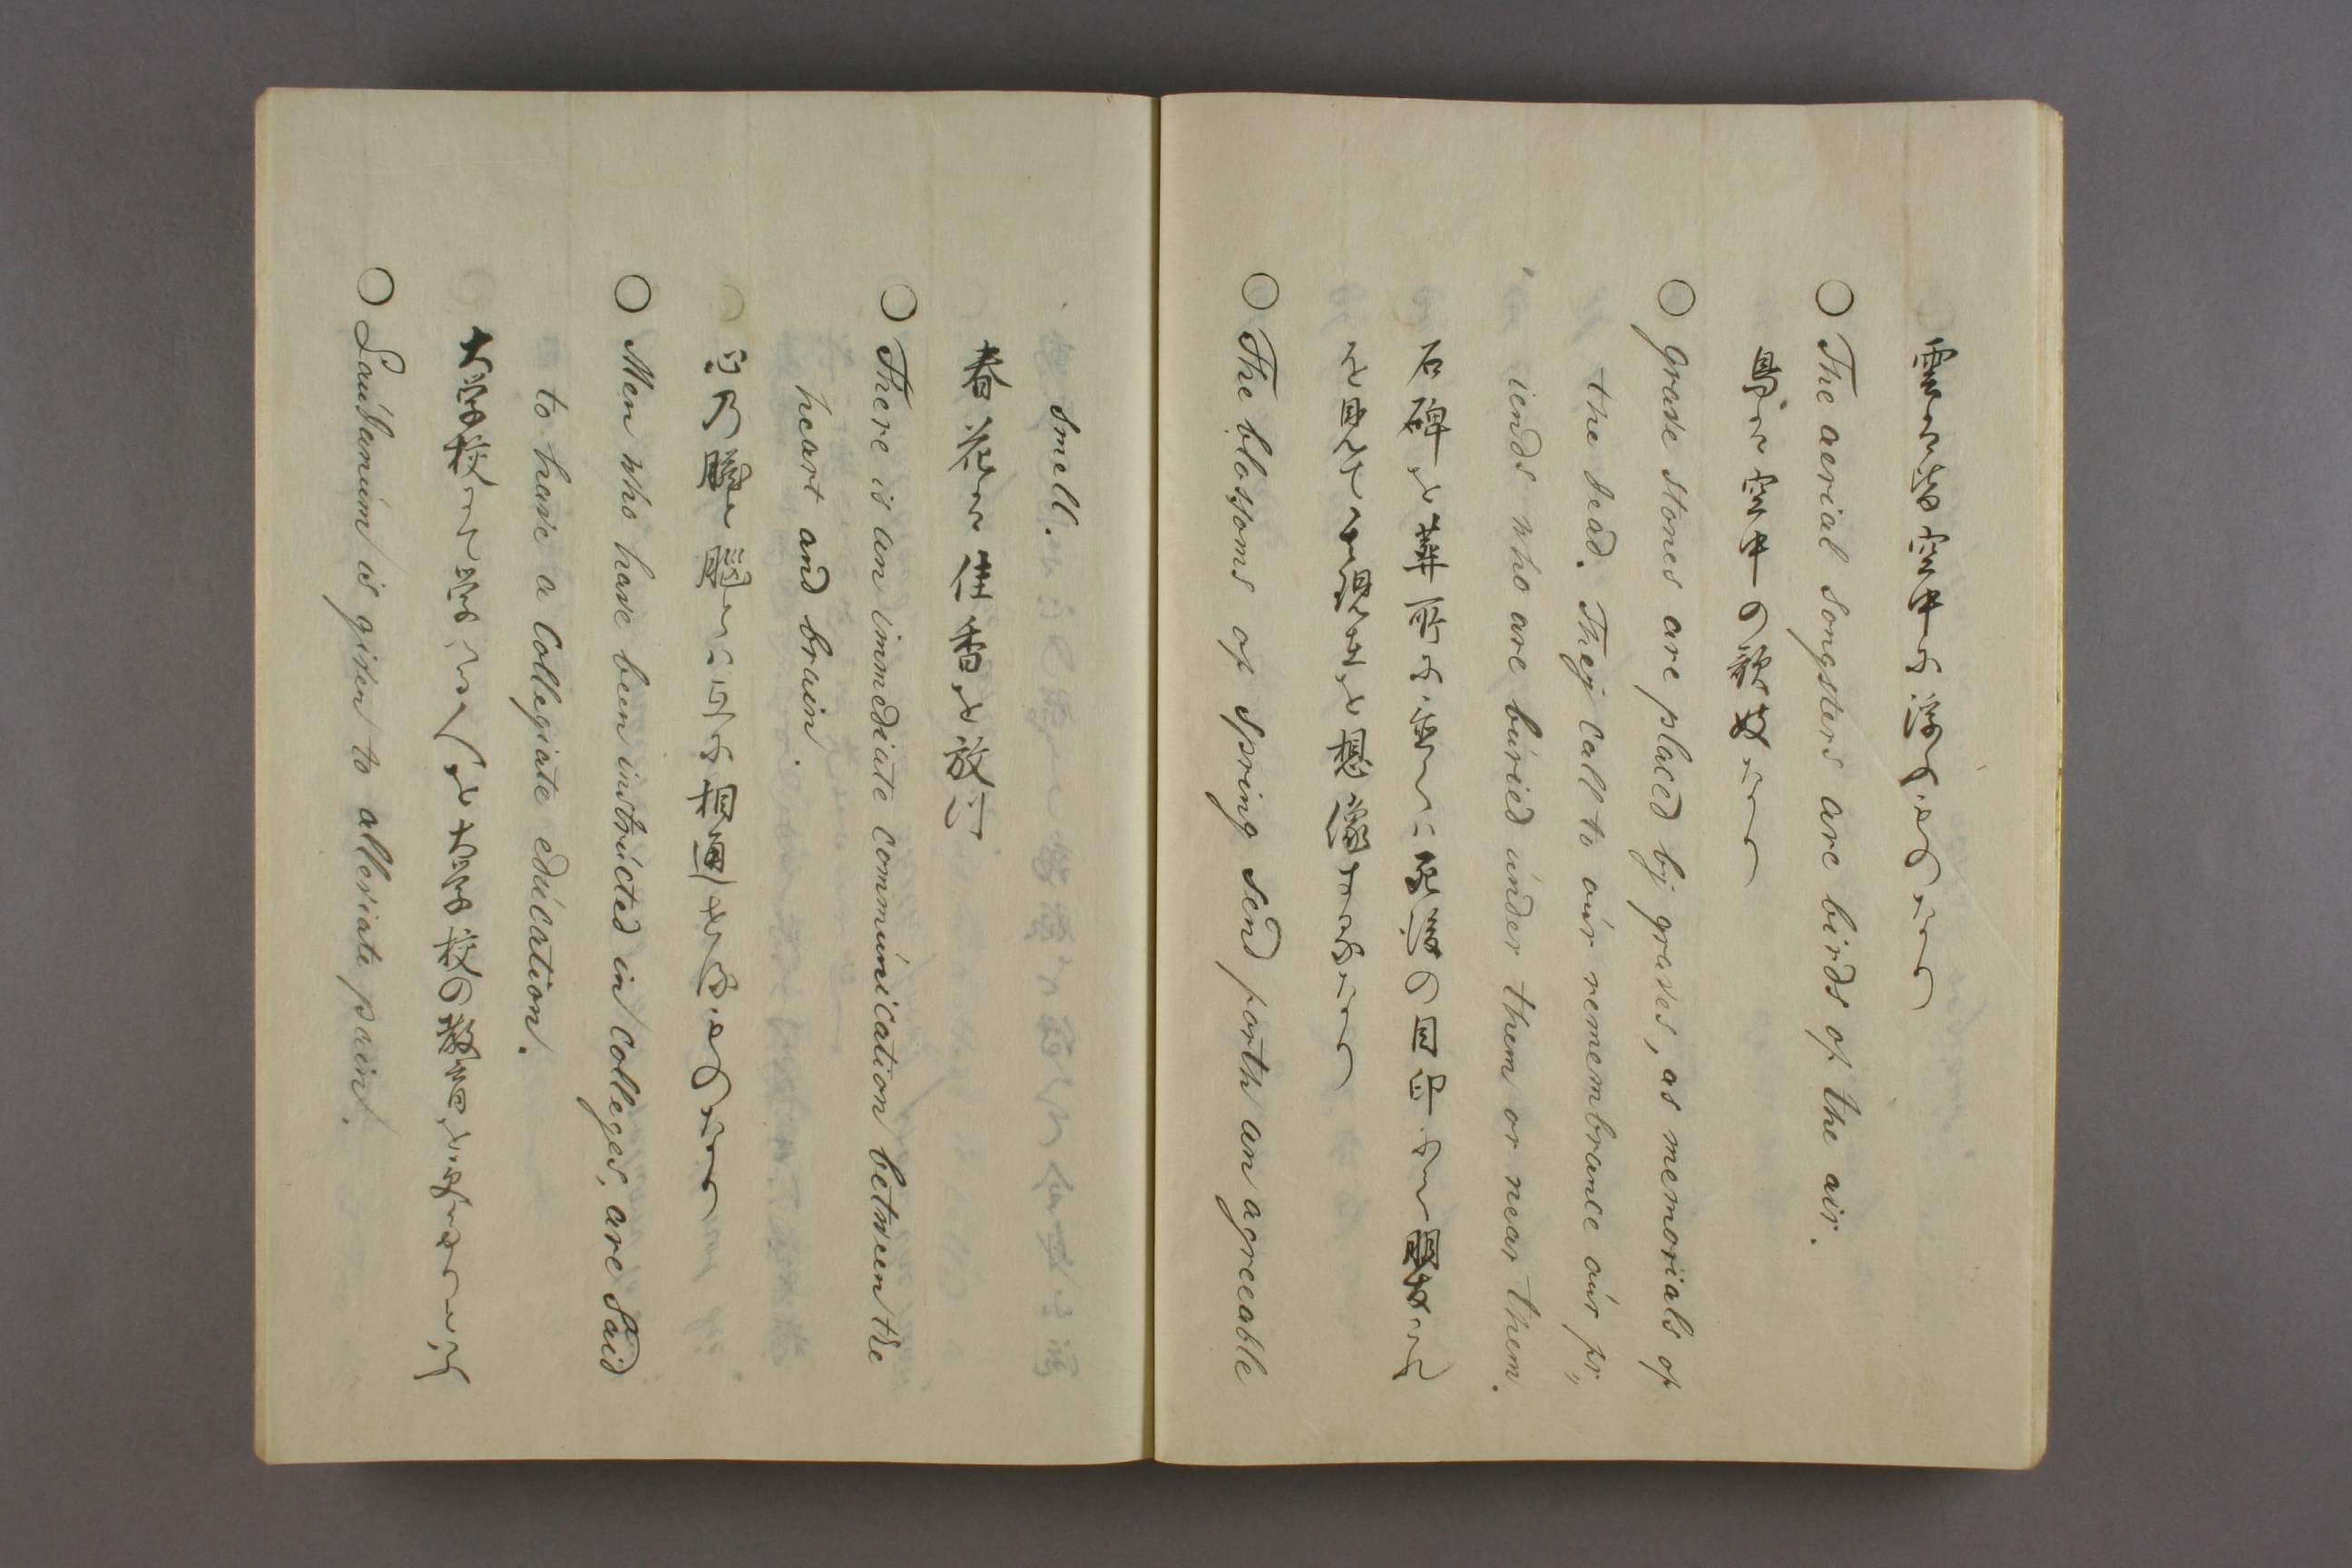 雲ハ皆空中に浮ひものなり
○ The aerial songsters are birds of the air.
鳥ハ空中の歌妓なり
○ Grave stones are placed by graves, as memorials of
the dead. They call to our remembrance our fr„
iends who are buried under them or near them.
石碑を葬所に立るハ死後の目印にし朋友これ
を見て現生を想像するなり
○ The blossoms of spring send forth an agreeable
smell.
春花ハ佳香を放つ
○ There is an immediate communication between the
heart and brain.
心乃臓と脳とハ直に相通するものなり
○ Men who have been instructed in Colleges, are Said
to have a Collegiate education.
大学校にて学ひし人を大学校の教育を
○ Laudanum is given to alleviate pain.